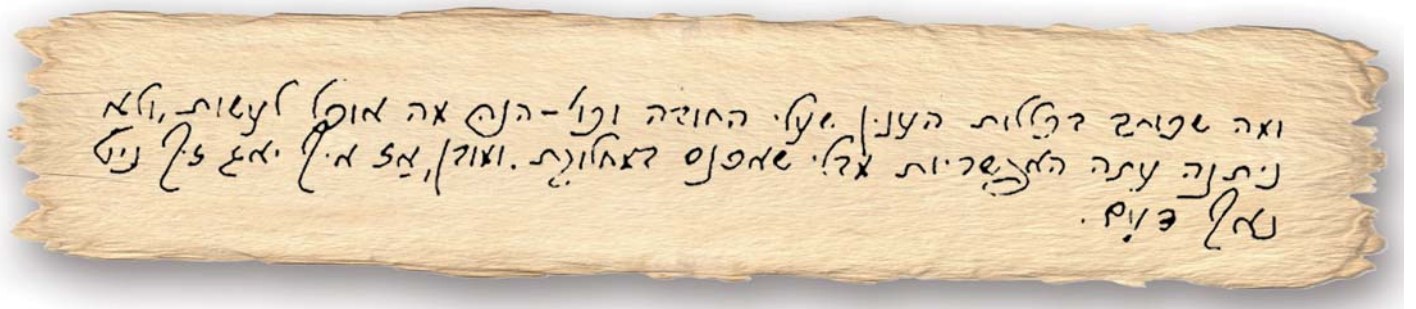 ומה שכותב בכללות הענין שעלי החובה וכו' - הנה מה אוכל לעשות, ולא
ניתנה עתה האפשריות מבלי שאכנס במחלוקת. ומובן, אז איך יאג זיך ניט
נאך דעם.